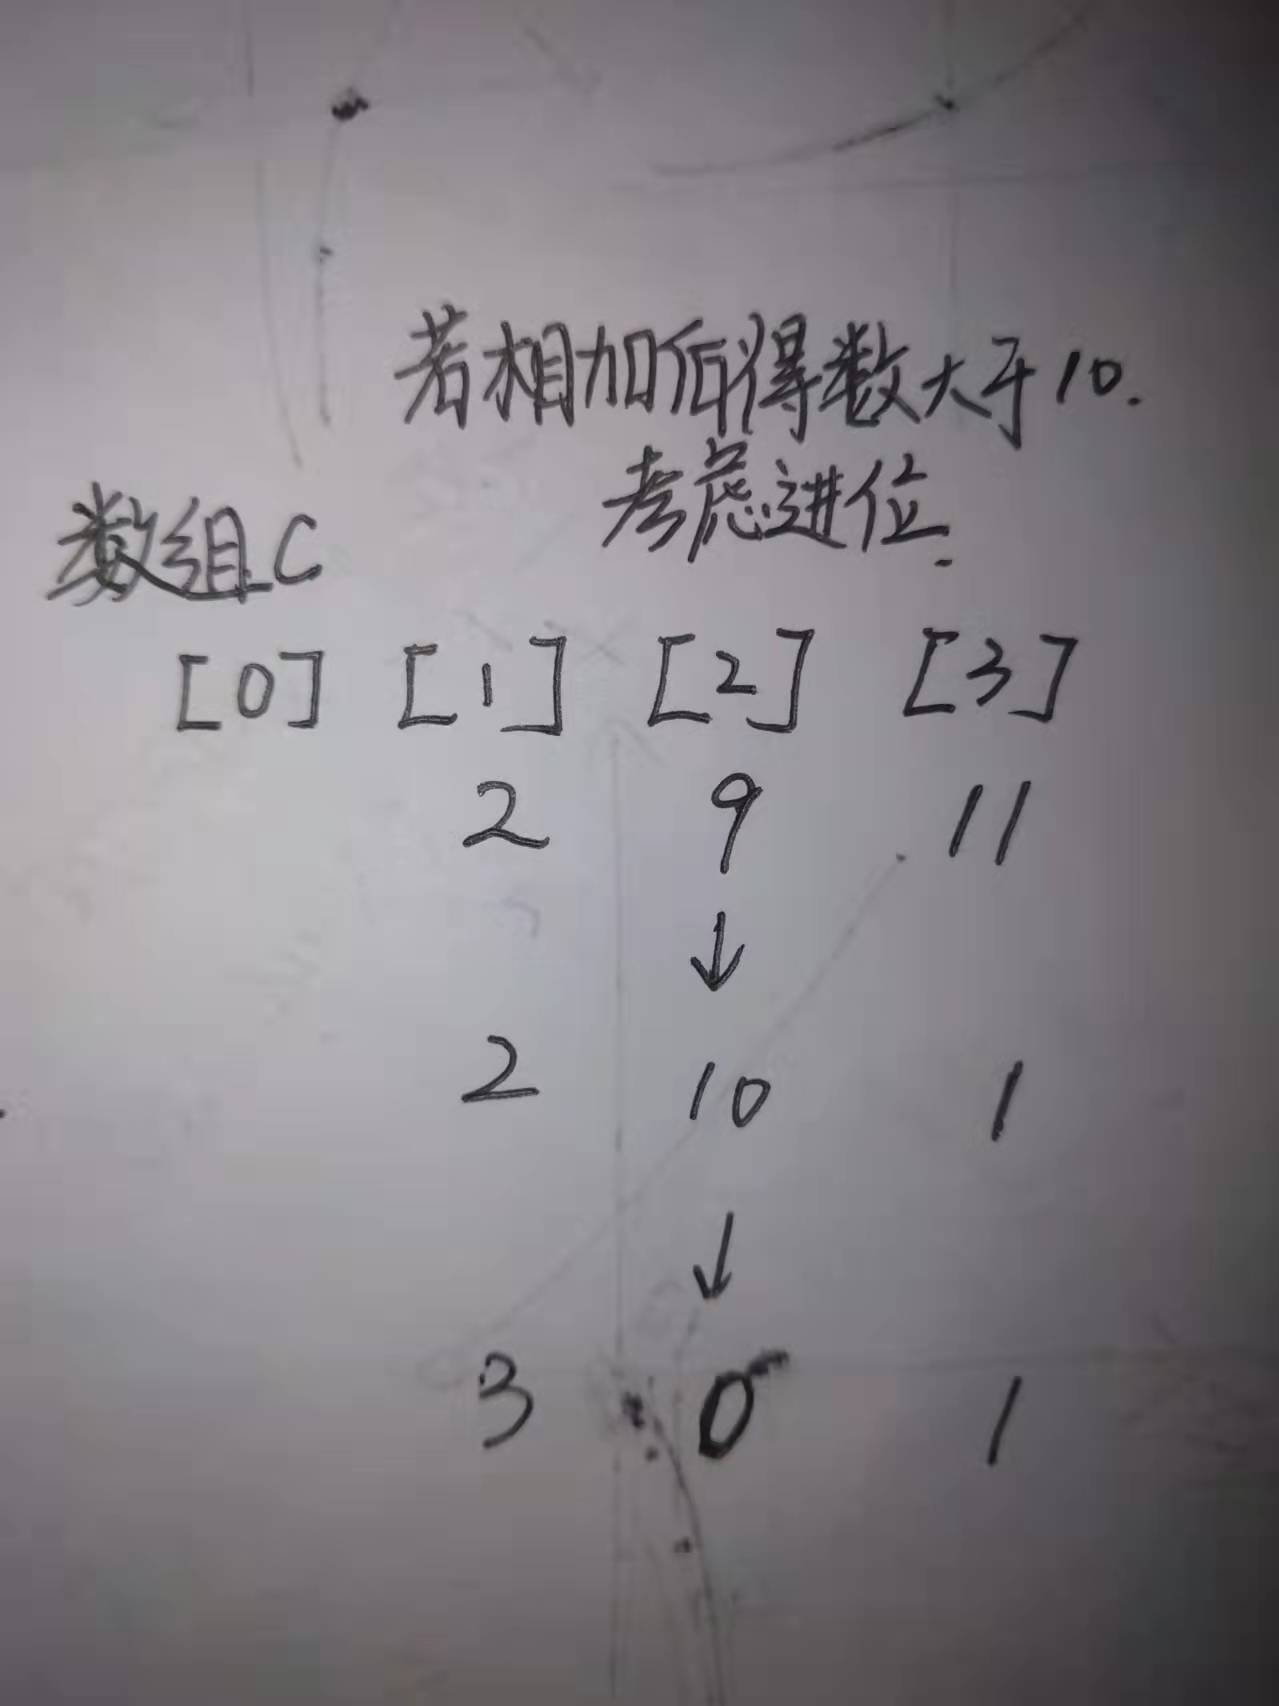 若相加后得数大于10.
考虑进位.
数组C
[0] [1] [2] [3]
2 9 11
↓
2 10 1
↓
3 0 1